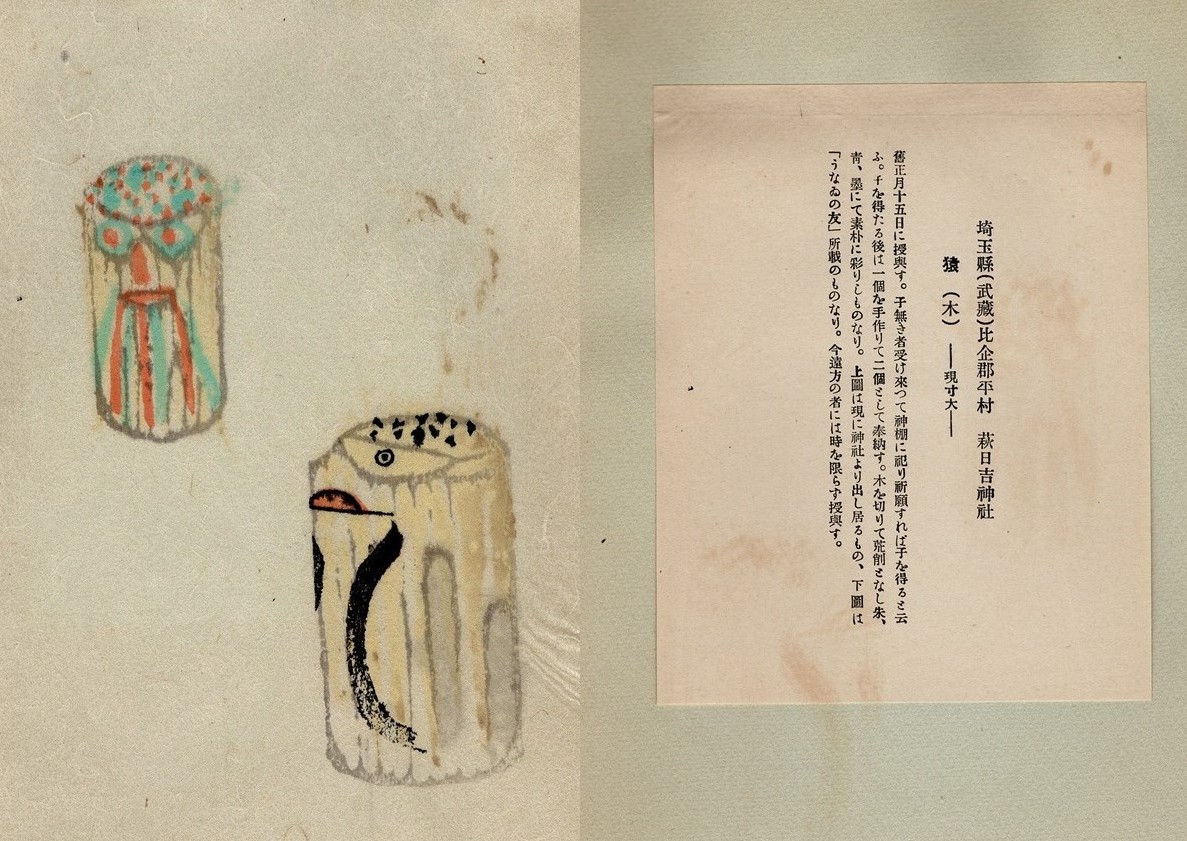 埼玉縣(武藏)比企郡平村　萩日吉神社
猿　(木)　——現寸大——
舊正月十五日に授與す。子無き者受け來つて神棚に祀り祈願すれば子を得ると云
ふ。子を得たる後は一個を手作りて二個として奉納す。木を切りて荒削となし朱、
靑、墨にて素朴に彩りしものなり。上圖は現に神社より出し居るもの、下圖は
「うなゐの友」所載のものなり。今遠方の者には時を限らず授與す。